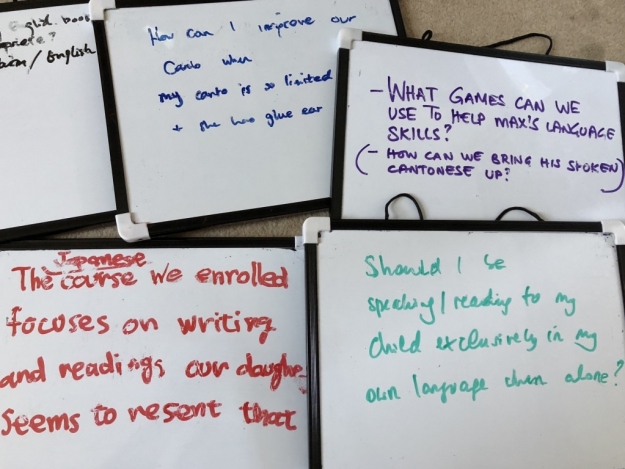 English. book
/ English
How can I improve our
Canto when
my canto is so limited
+ she has glue ear
- WHAT GAMES CAN WE
USE TO HELP MAX'S LANGUAGE
SKILLS?
(- HOW CAN WE BRING HIS SPOKEN
CANTONESE UP?)
Japanese
The course we enrolled
focuses on writing
and readings our daughte
seems to resent that
Should I be
speaking/reading to my
child exclusively in my
own language when alone?